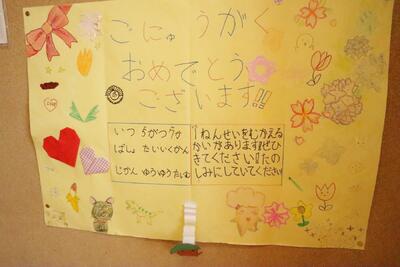 ごにゅうがく
おめでとう
ございます!!
いつ 5がつ7か
ばしょ たいいくかん
じかん ゆうゆうたいむ
1ねんせいをむかえる
かいがあります!ぜひ
きてください!!たの
しみにしていてください